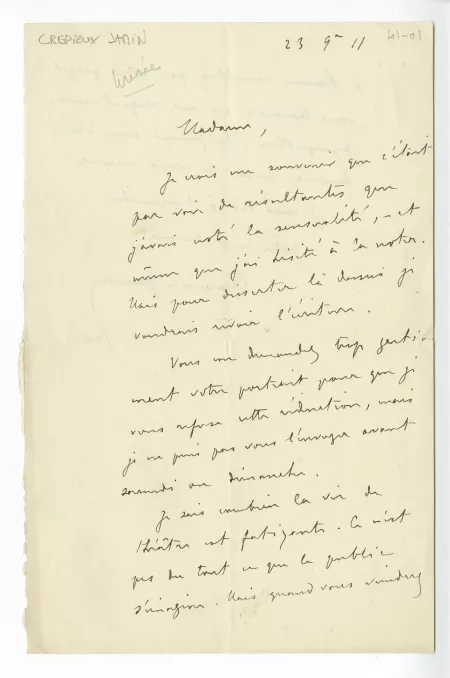 CREPIEUX JAMIN
23 9re 11
41-01
brisée
Madame,
Je crois me souvenir que c'était
par voir de résultantes que
j'avais noté la sensualité, - et
même que j'ai hésité à la noter.
Mais pour discuter là dessus je
voudrais revoir l'écriture.
Vous me demandez trop genti-
ment votre portrait pour que je
vous refuse cette rédaction, mais
je ne puis pas vous l'envoyer avant
samedi ou dimanche.
Je sais combien la vie de
théâtre est fatigante. Ce n'est
pas du tout ce que le public
s'imagine. Mais quand vous viendrez